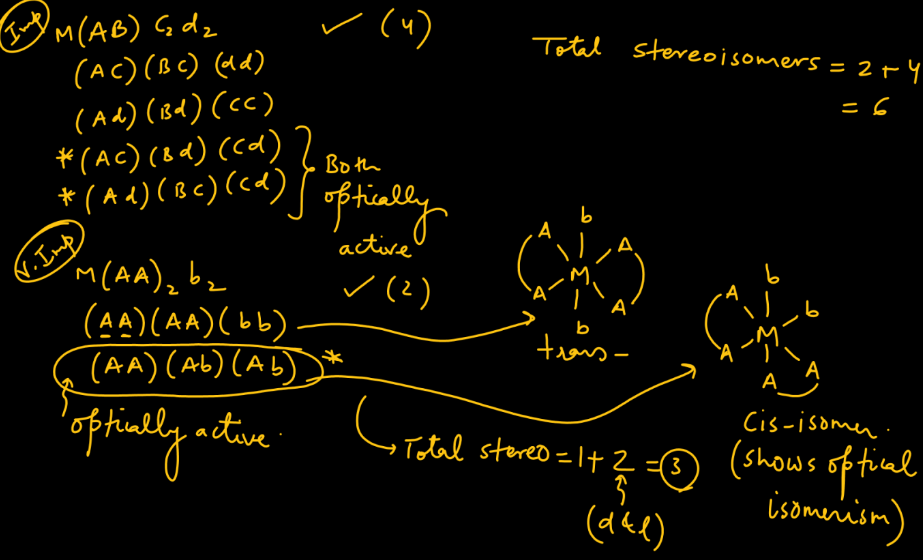 Imp
M(AB) C₂ d₂ ✓ (4)
(AC) (BC) (dd)
(Ad) (Bd) (CC)
*(AC) (Bd) (Cd)
*(Ad) (BC) (Cd)
} Both
optically
active
Total stereoisomers = 2 + 4
= 6
V.Imp
M(AA)₂ b₂ ✓ (2)
(AA) (AA) (bb)
(AA) (Ab) (Ab) *
optically active.
b
A A
M
A A
b
trans-
b
A b
M
A A
A
Cis-isomer.
(shows optical
isomerism)
Total stereo = 1 + 2 = 3
(d & l)